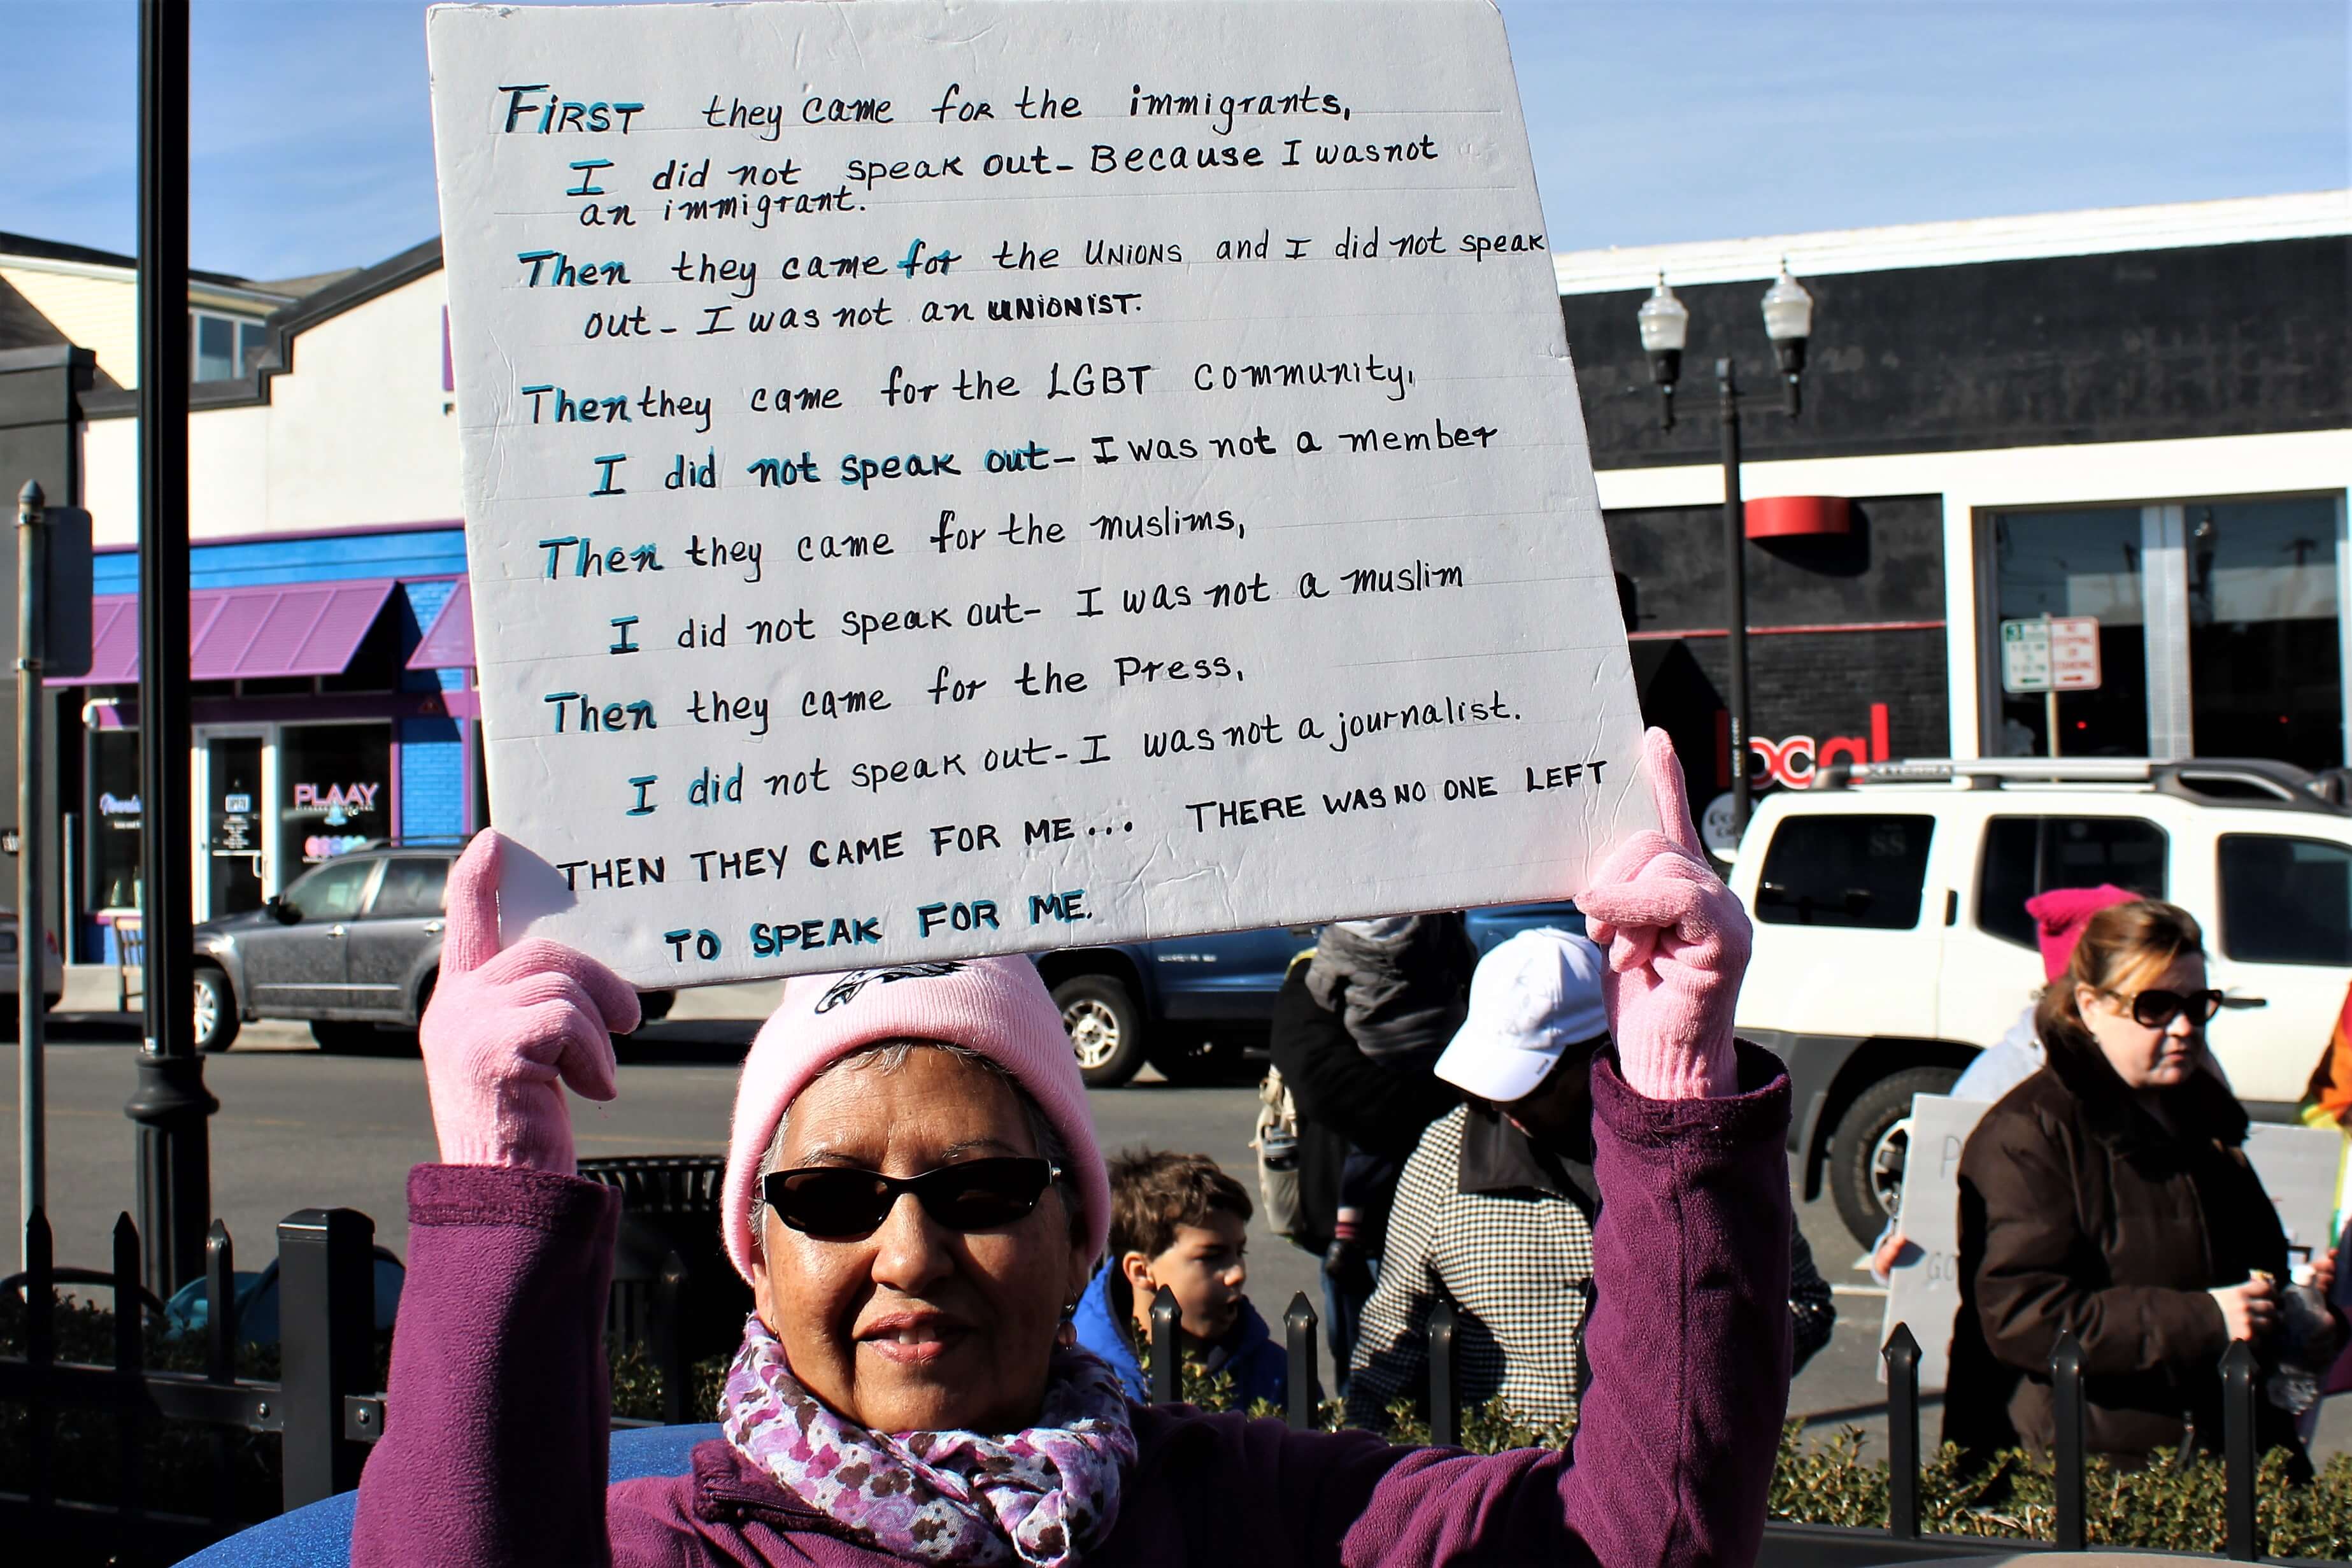 FiRST they came foR the immigrants,
I did not speak out- Because I was not
an immigrant.
Then they came for the UNIONS and I did not speak
out- I was not an UNiONiST.
Then they came for the LGBT community,
I did not speak out- I was not a member
Then they came for the muslims,
I did not speak out- I was not a muslim
Then they came for the Press,
I did not speak out- I was not a journalist.
THEN THEY CAME FOR ME... THERE WAS NO ONE LEFT
TO SPEAK FOR ME.
PLAAY
OPEN
local